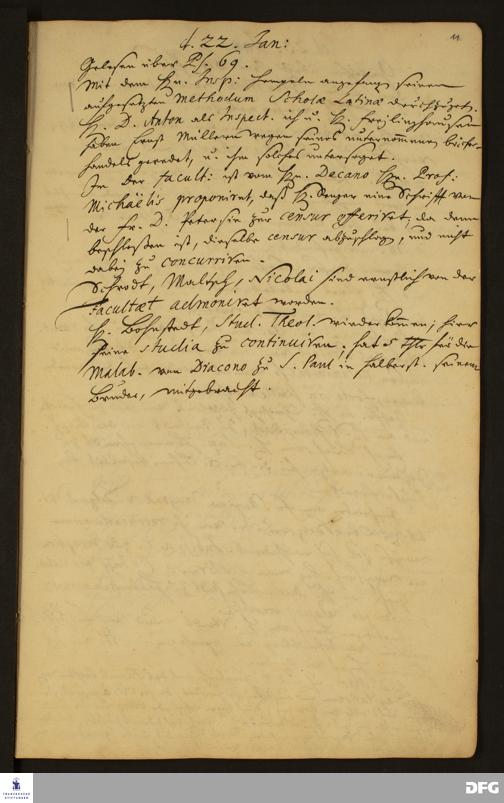 11.
d. 22. Jan:
Gelesen über Ps. 69.
Mit dem Hn. Insp: Hempeln angefang seinen
aufgesetzten Methodum Scholæ Latinæ durchzugeh.
H. D. Anton als Inspect. ich u. H. Freylinghausen
haben Ernst Müllern wegen seines unternommenen Bücher-
handels geredet, u. ihm solches untersaget.
In der Facult: ist vom Hn. Decano Hn. Prof:
Michaëlis proponiret, daß H. Zenger eine Schrifft von
der Fr. D. Petersin zur censur offeriret, da denn
beschloßen ist, dieselbe censur abzuschlag, und nicht
dabey zu concurriren.
Schrodt, Maltsch, Nicolai sind ernstlich von der
Facultæt admoniret worden.
H. Bohnstedt, Stud. Theol. wieder kommen, hier
seine studia zu continuiren, hat 5 thlr für die
Malab. vom Diacono zu S. Paul in Halberst. seinem
Bruder, mitgebracht.
FRANCKESCHE
STIFTUNGEN
DFG